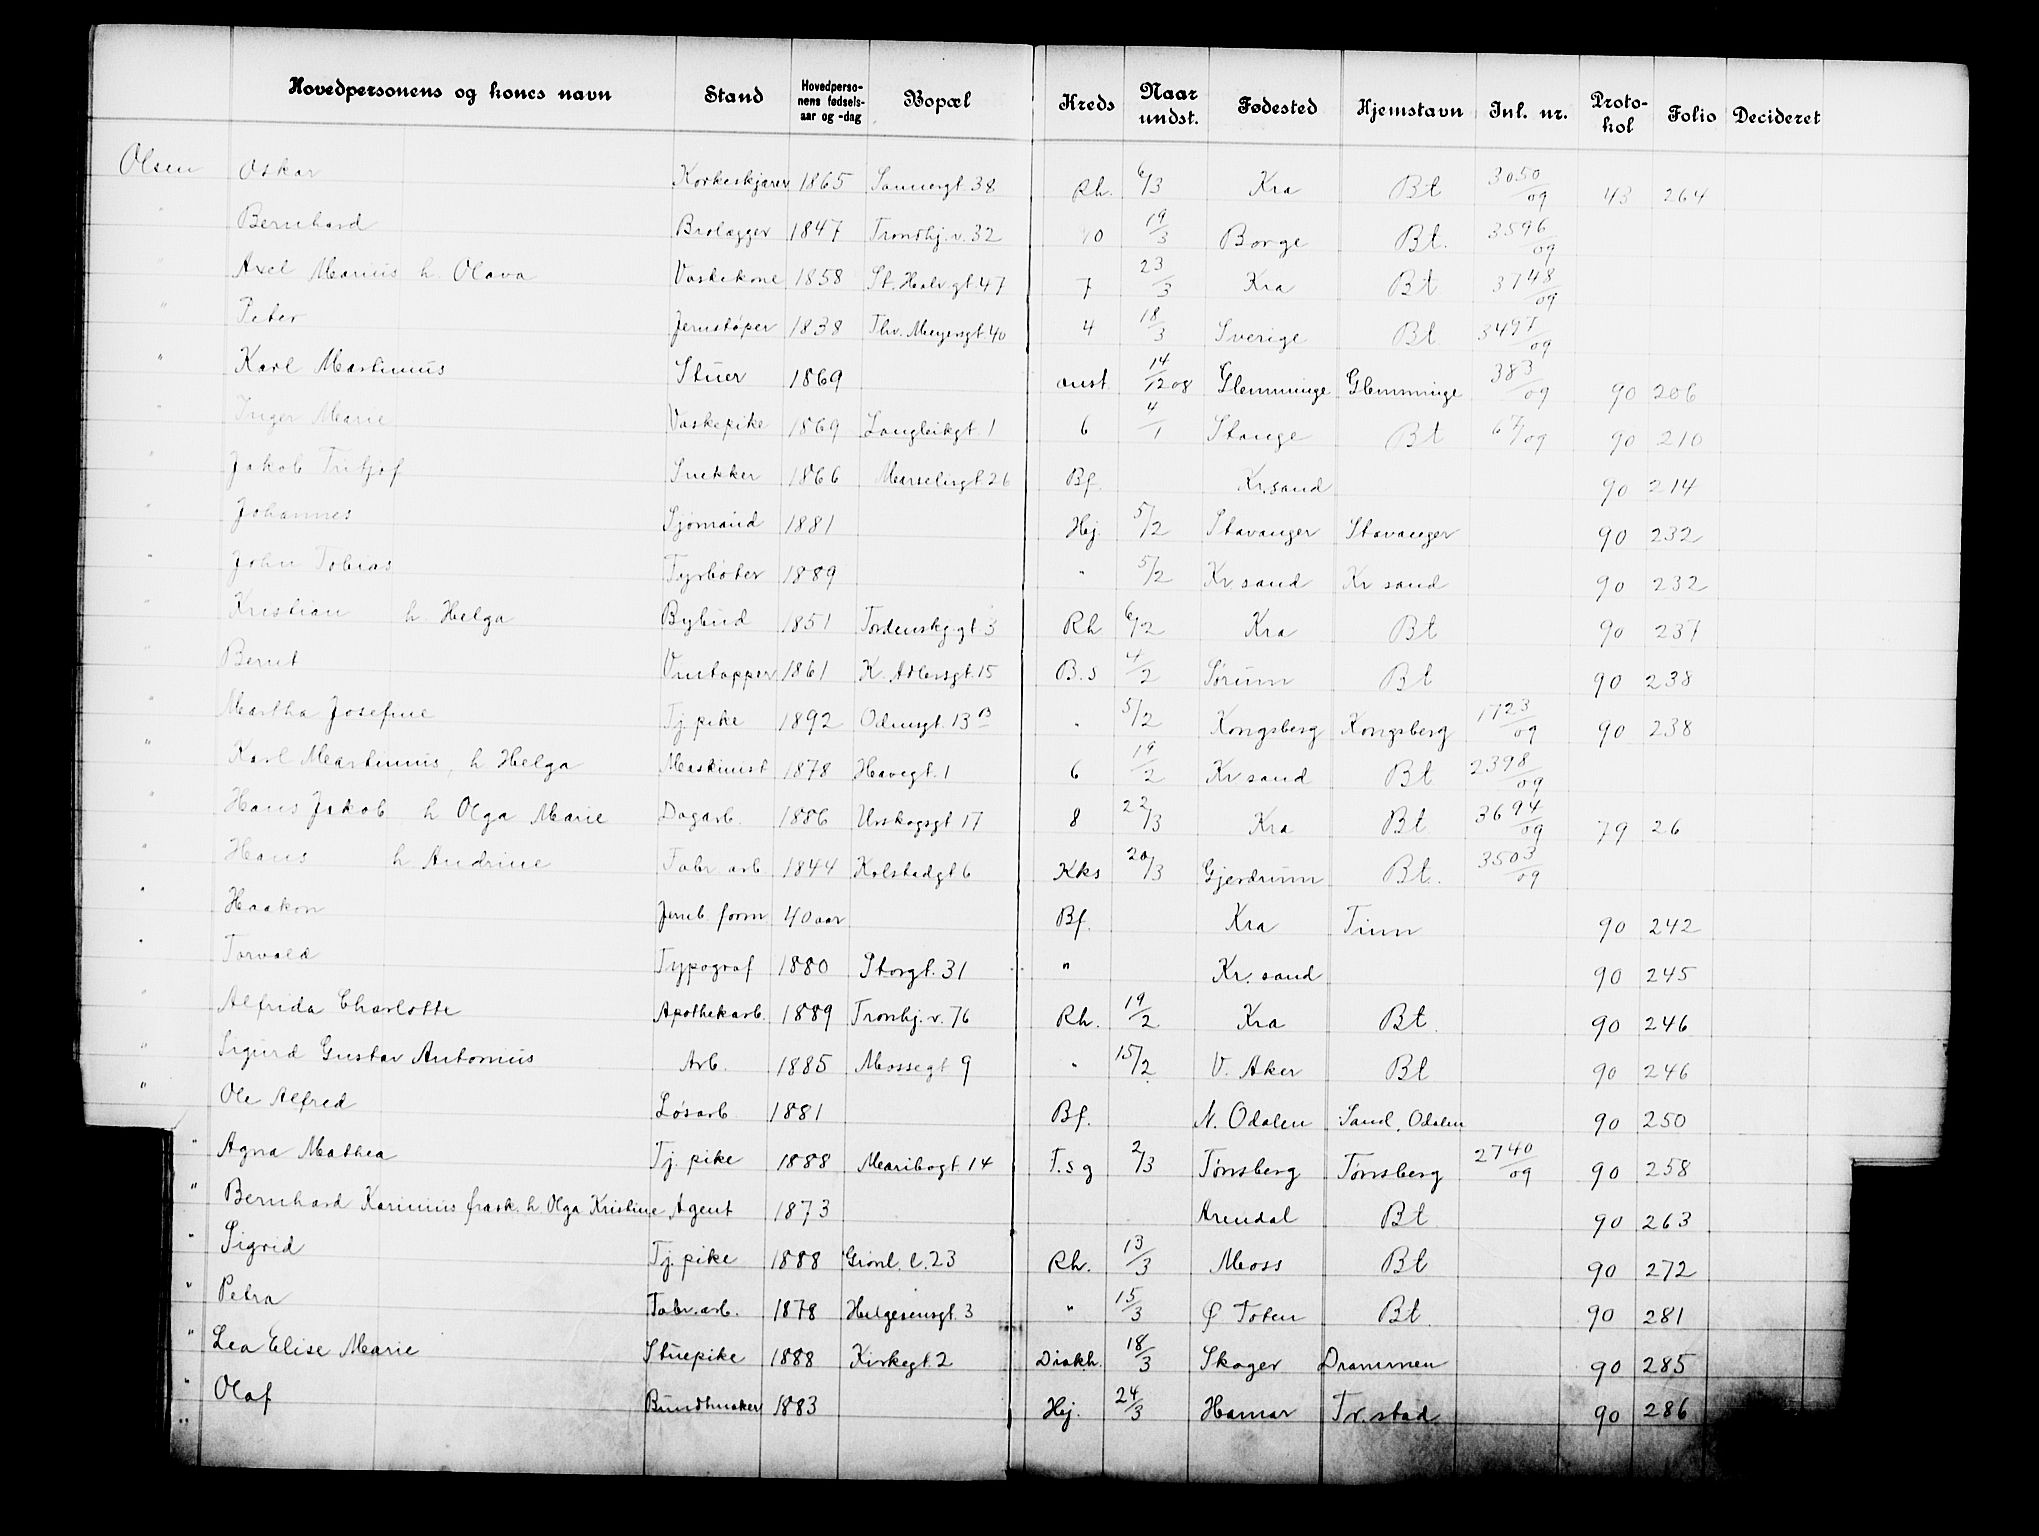 Hovedpersonens og kones navn Stand Hovedpersonens fødselsaar og -dag Bopæl Kreds Naar undst. Fødested Hjemstavn Inl. nr. Protokol Folio Decideret
Olsen Oskar Korkeskjærer 1865 Sannergt. 38 Rh. 6/3 Kra Bt 3050/09 43 264
" Bernhard Brolægger 1847 Trondhj. v. 32 10 19/3 Borge Bt. 3596/09
" Axel Marius h. Olava Vaskekone 1858 St. Halv.gt 47 7 23/3 Kra Bt 3748/09
" Peter Jernstøper 1838 Thv. Meyersgt. 40 4 18/3 Sverige Bt 3497/09
" Karl Martinius Stuer 1869 anst. 14/12 08 Glemminge Glemminge 383/09 90 206
" Inger Marie Vaskepike 1869 Langleikgt 1 6 4/1 Stange Bt 67/09 90 210
" Jakob Fritjof Snekker 1866 Marselisgt. 26 Bf. Kr.sand 90 214
" Johannes Sjømand 1881 Hej. 5/2 Stavanger Stavanger 90 232
" John Tobias Fyrbøter 1889 " 5/2 Kr. sand Kr sand 90 232
" Kristian h. Helga Bybud 1851 Tordenskj.gt 3 Rh 6/2 Kra Bt 90 237
" Bernt Vintapper 1861 K. Adlersgt. 15 B.s 4/2 Sørum Bt 90 238
" Martha Josefine Tj. pike 1892 Odinsgt. 13 B " 5/2 Kongsberg Kongsberg 1723/09 90 238
" Karl Martinius, h Helga Maskinist 1878 Havegt. 1 6 19/2 Kr sand Bt 2398/09
" Hans Jakob h Olga Marie Dagarb. 1886 Urskogsgt 17 8 22/3 Kra Bt. 3694/09 79 26
" Hans h Andrine Fabr. arb 1844 Kolstadgt 6 Kks 20/3 Gjerdrum Bt. 3503/09
" Haakon Jernb. form. 40 aar Bf. Kra Tinn 90 242
" Torvald Typograf 1880 Storgt. 31 " Kr. sand 90 245
" Alfrida Charlotte Apothekarb. 1889 Tronhj. v. 76 Rh. 19/2 Kra Bt. 90 246
" Sigurd Gustav Antonius Arb. 1885 Mossegt 9 " 15/2 V. Aker Bt 90 246
" Ole Alfred Løsarb 1881 Bf. N. Odalen Sand, Odalen 90 250
" Agna Mathea Tj. pike 1888 Maribogt. 14 F.s g 2/3 Tønsberg Tønsberg 2740/09 90 258
" Bernhard Karinius frask. h Olga Kristine Agent 1873 Arendal Bt 90 263
" Sigrid Tj. pike 1888 Grønl. l. 23 Rh. 13/3 Moss Bt 90 272
" Petra Fabr. arb. 1878 Helgesensgt. 3 " 15/3 Ø Toten Bt. 90 281
" Lea Elise Marie Stuepike 1888 Kirkegt. 2 Diakh. 18/3 Skoger Drammen 90 285
" Olaf Bundtmaker 1883 Hej. 24/3 Hamar Fr. stad 90 286
"